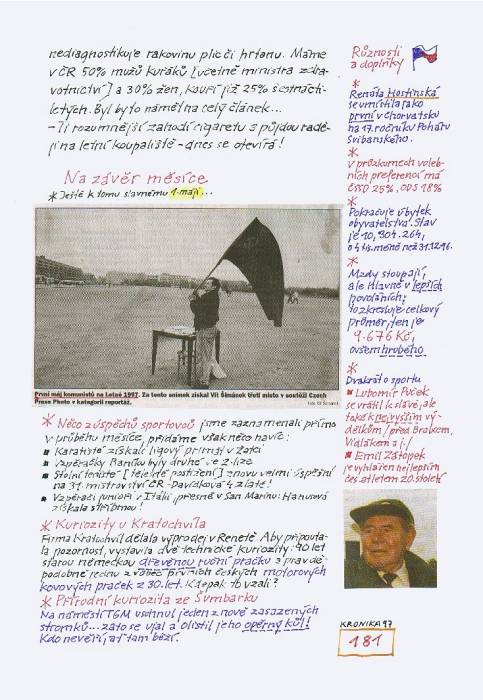 nediagnostikuje rakovinu plic či hrtanu. Máme
v ČR 50% mužů kuřáků [včetně ministra zdra-
votnictví] a 30% žen, kouří již 25% šestnácti-
letých. Byl by to námět na celý článek...
- Ti rozumnější zahodí cigaretu a půjdou radě-
ji na letní koupaliště - dnes se otevírá!
Na závěr měsíce
* Ještě k tomu slavnému 1. máji...
První máj komunistů na Letné 1997. Za tento snímek získal Vít Šimánek třetí místo v soutěži Czech
Press Photo v kategorii reportáž.
* Něco z úspěchů sportovců jsme zaznamenali přímo
v průběhu měsíce, přidáme však něco navíc:
■ Karatisté získali ligový primát v Žatci
■ Vzpěračky Baníku byly druhé ve 2. lize.
■ Stolní tenisté [tělesně postižení] znovu velmi úspěšní
na 31. mistrovství ČR - Davídková 4 zlaté!
■ Vzpěrači junioři v Itálii, přesně v San Marinu: Hanusová
získala stříbrnou!
* Kuriozity u Kratochvíla
Firma Kratochvíl dělala výprodej v Renetě. Aby připouta-
la pozornost, vystavila dvě technické kuriozity: 90 let
starou německou dřevěnou ruční pračku a pravdě-
podobně jednu z vůbec prvních českých motorových
kovových praček z 30. let. Kdepak to vzali?
* Přírodní kuriozita ze Šumbarku
Na náměstí TGM uschnul jeden z nově zasazených
stromků... zato se ujal a olistil jeho opěrný kůl!
Kdo nevěří, ať tam běží.
Různosti
a doplňky
*
Renáta Hostinská
se umístila jako
první v Chorvatsku
na 17. ročníku Poháru
Svibanského.
*
V průzkumech voleb-
ních preferencí má
ČSSD 25%, ODS 18%
*
Pokračuje úbytek
obyvatelstva. Stav
je 10,304.264,
*
Mzdy stoupají,
ale hlavně v lepších
povoláních;
to zkresluje celkový
průměr, ten je
9.676 Kč,
ovšem hrubého.
*
Dvakrát o sportu
■ Lubomír Puček
se vrátil k slávě, ale
také k nejvyšším vý-
dělkům / před Brabcem,
Vidlákem aj./
■ Emil Zátopek
je vyhlášen nejlepším
čes. atletem 20. století
KRONIKA 97
181